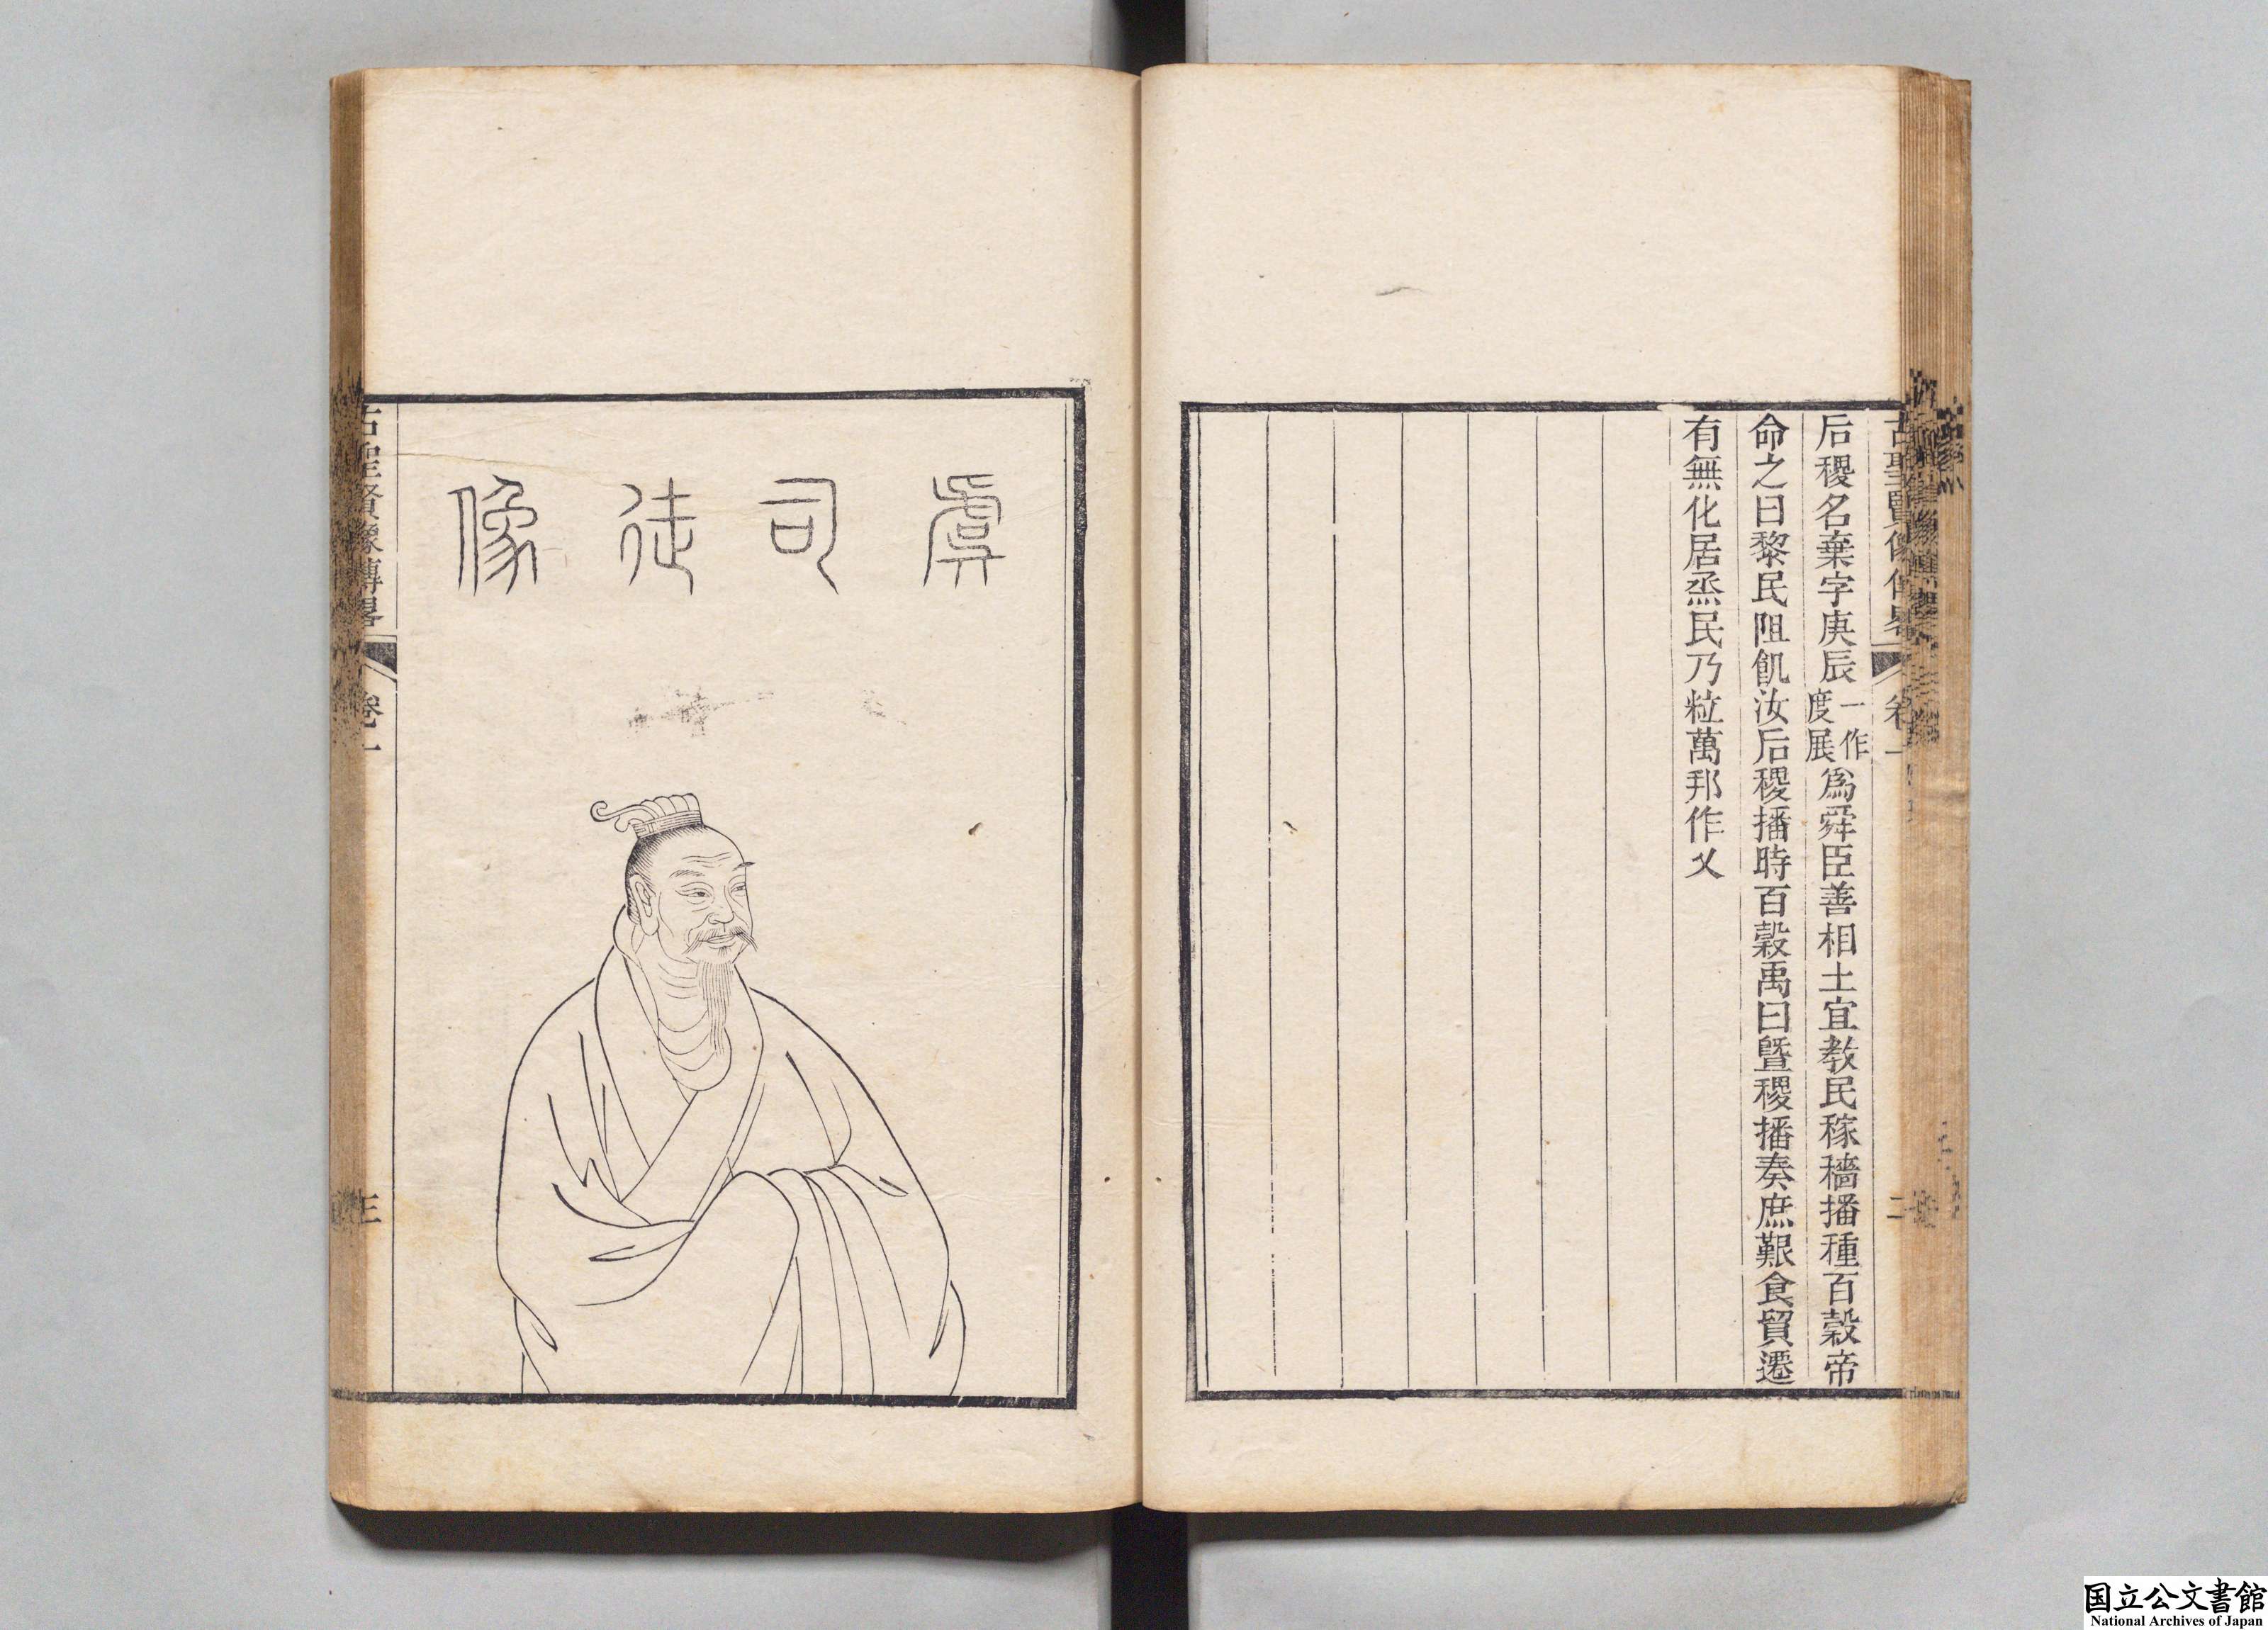 古聖賢像傳畧 卷一 二
后稷名棄字庚辰一作度展爲舜臣善相土宜教民稼穡播種百穀帝
命之曰黎民阻飢汝后稷播時百穀禹曰曁稷播奏庶艱食貿遷
有無化居烝民乃粒萬邦作乂
虞司徒像
古聖賢像傳畧 卷一 三
国立公文書館
National Archives of Japan